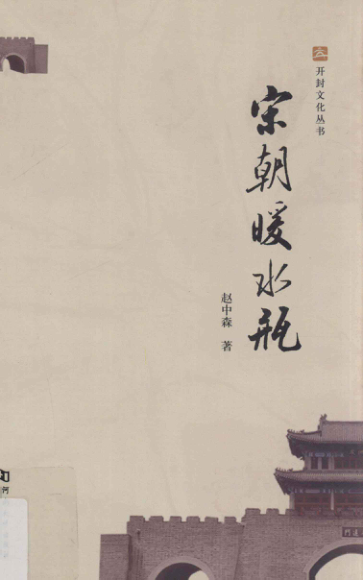 开封文化丛书
宋朝暖水瓶
赵中森 著
河
门